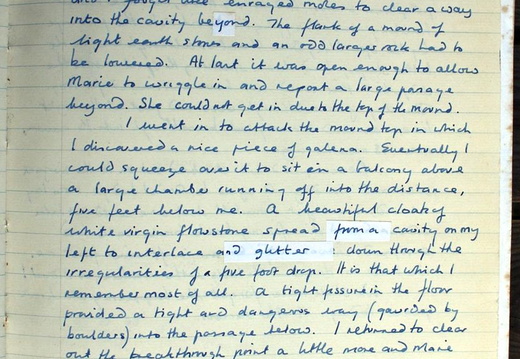 and I fought like enraged moles to clear a way
into the cavity beyond. The flank of a mound of
tight earth stones and an odd larger rock had to
be lowered. At last it was open enough to allow
Marie to wriggle in and report a large passage
beyond. She couldnt get in due to the top of the mound.
I went in to attack the mound top in which
I discovered a nice piece of galena. Eventually I
could squeeze over it to sit in a balcony above
a large chamber running off into the distance,
five feet below me. A beautiful cloak of
white virgin flowstone spread from a cavity on my
left to interlace and glitter : down through the
irregularities of a five foot drop. It is that which I
remember most of all. A tight fissure in the floor
provided a tight and dangerous way (guarded by
boulders) into the passage below. I returned to clear
out the breakthrough point a little more and Marie